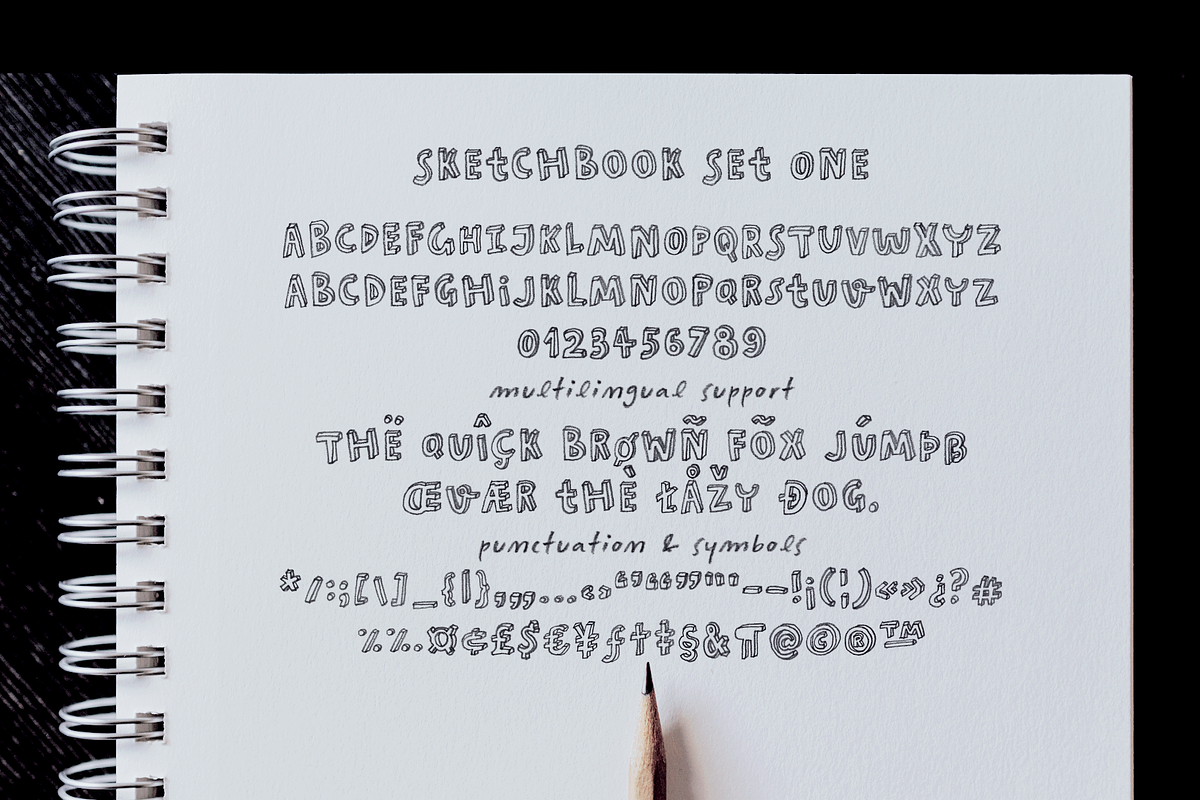 SKEtCHBOOK SEt ONE
ABCDEFGHIJKLMNOPQRSTUVWXYZ
ABCDEFGHiJKLMNOPQRStUVWXYZ
0123456789
multilingual support
THË QUÎÇK BRØWÑ FÕX JÚMÞB
ŒVÆR tHÈ ŁÅŽY ÐOG.
punctuation & symbols
*/:;[\]_{|}‚„,…‹›“”“”'"–—!¡(¦)«»¿?#
⁒٪..¤¢£$€¥ƒ†‡§&¶@©®™